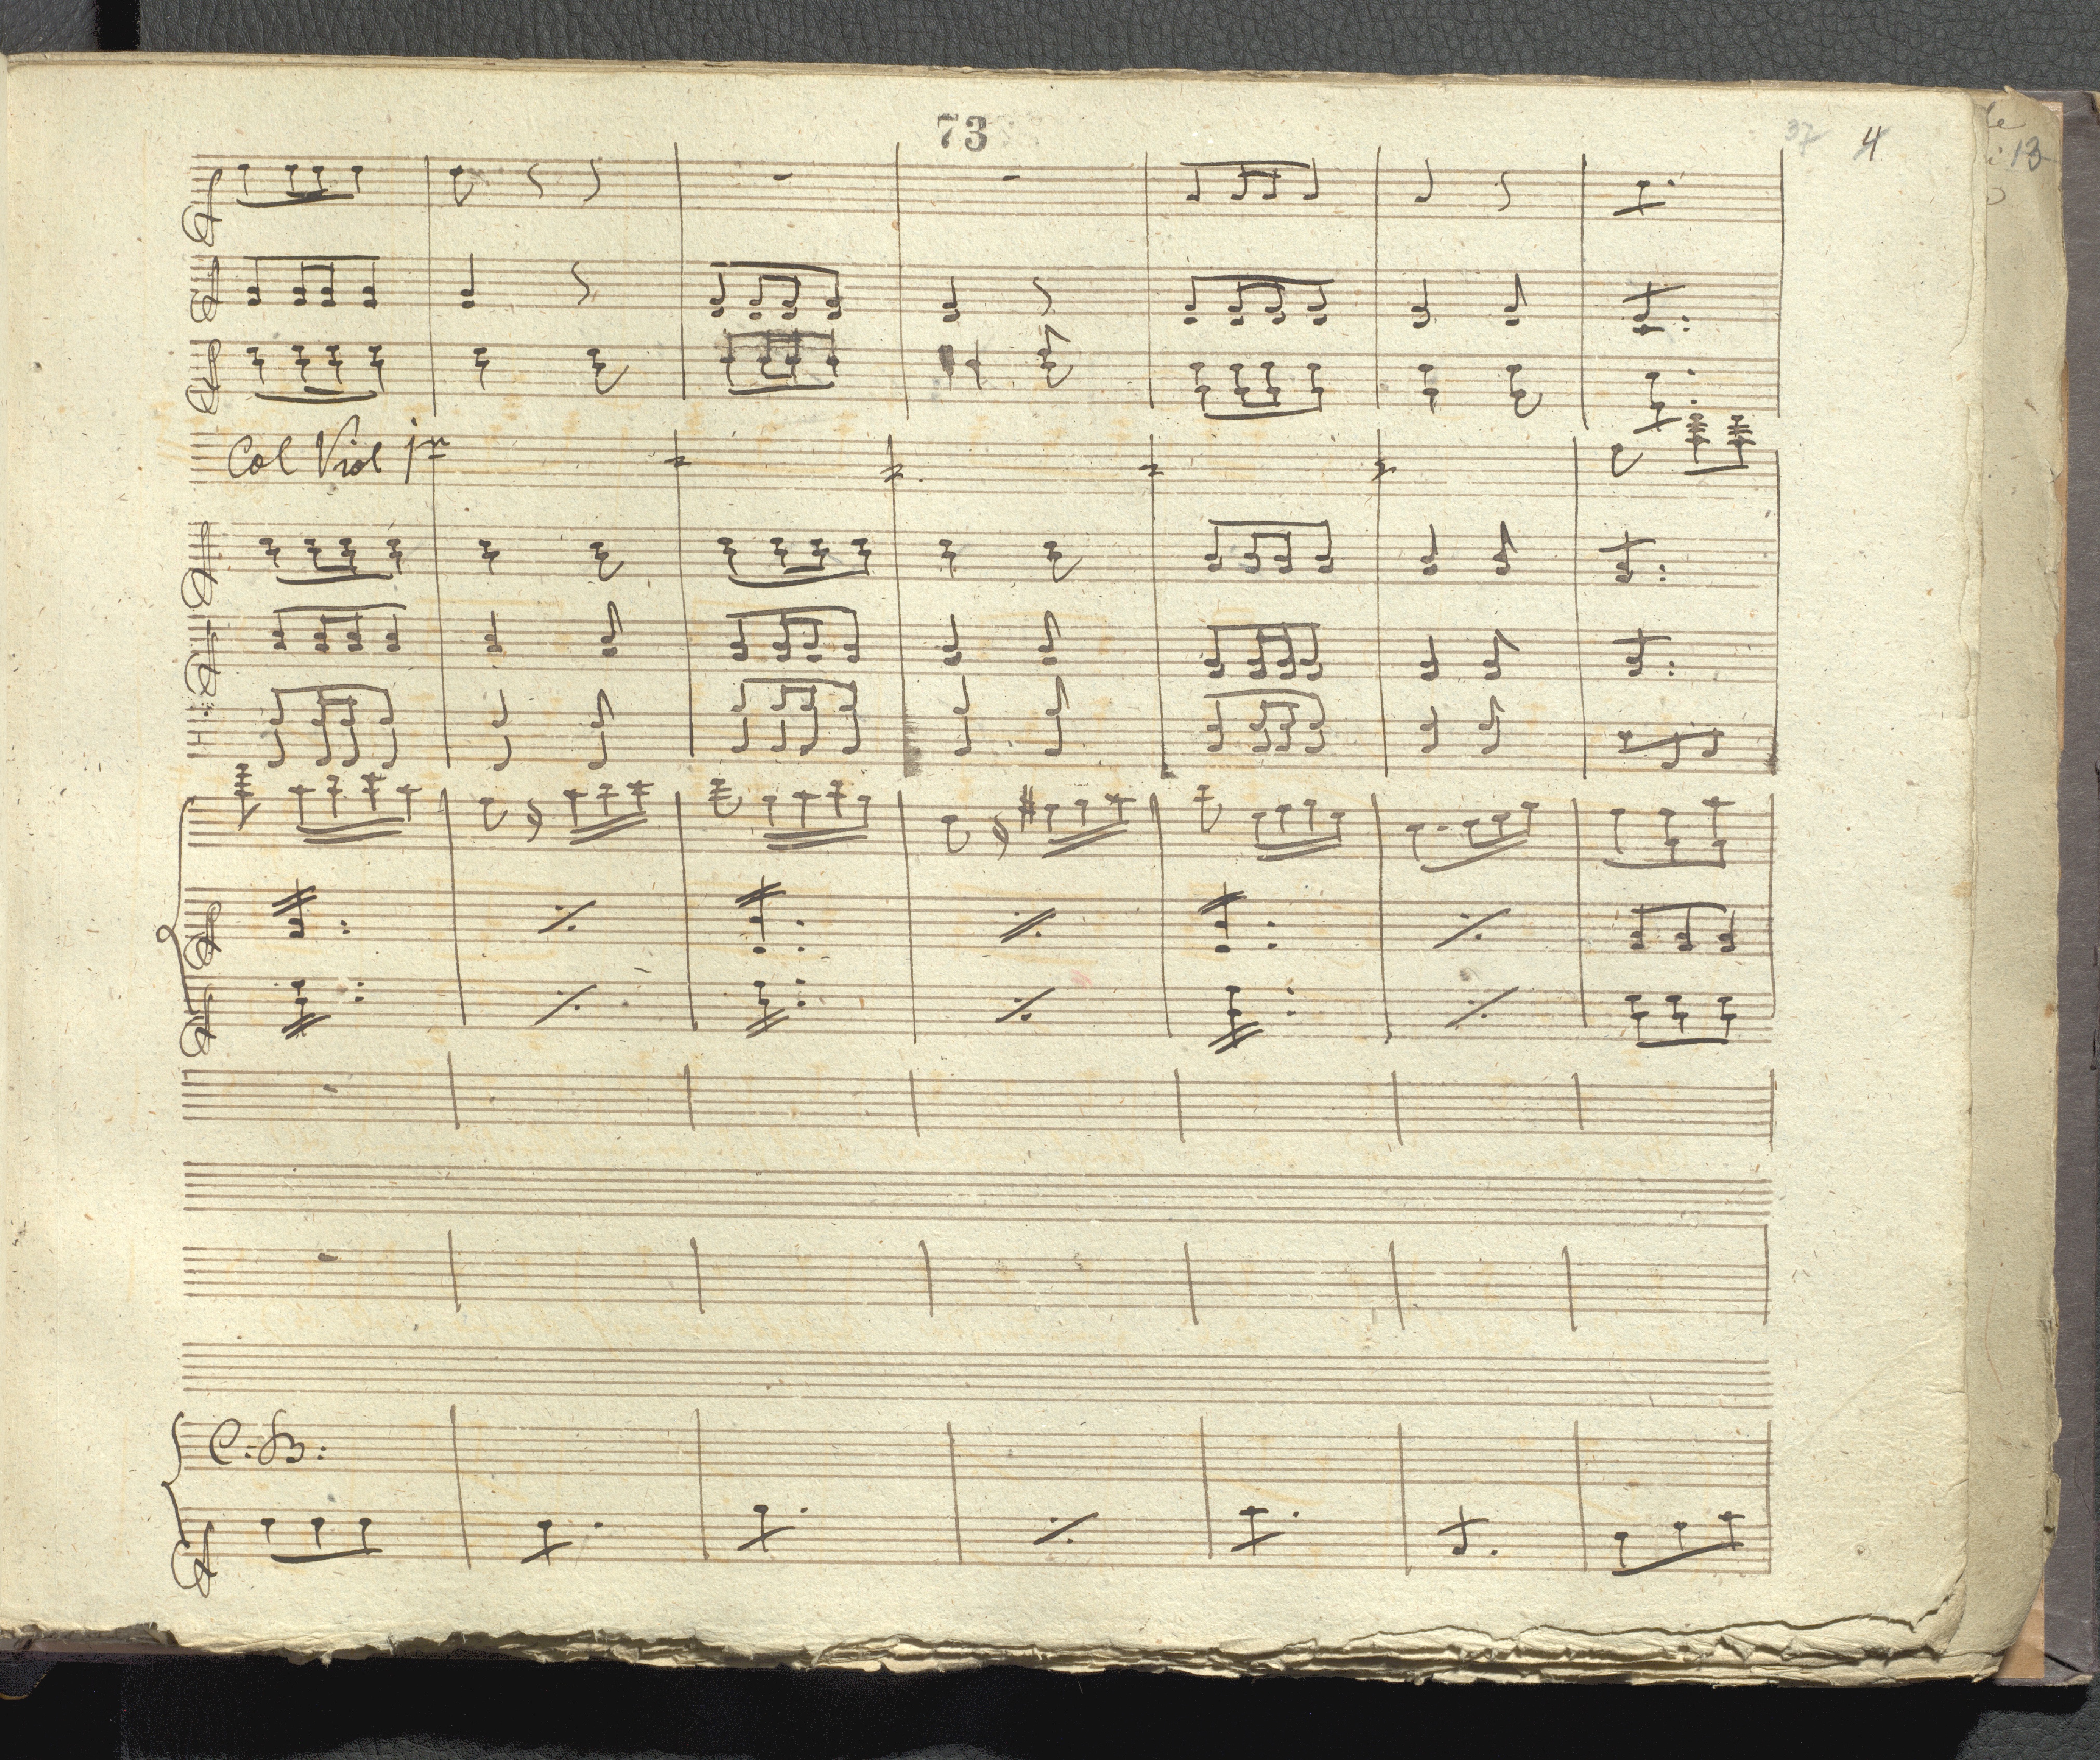 73
37 4
13
Col Viol 1mo
C: B: